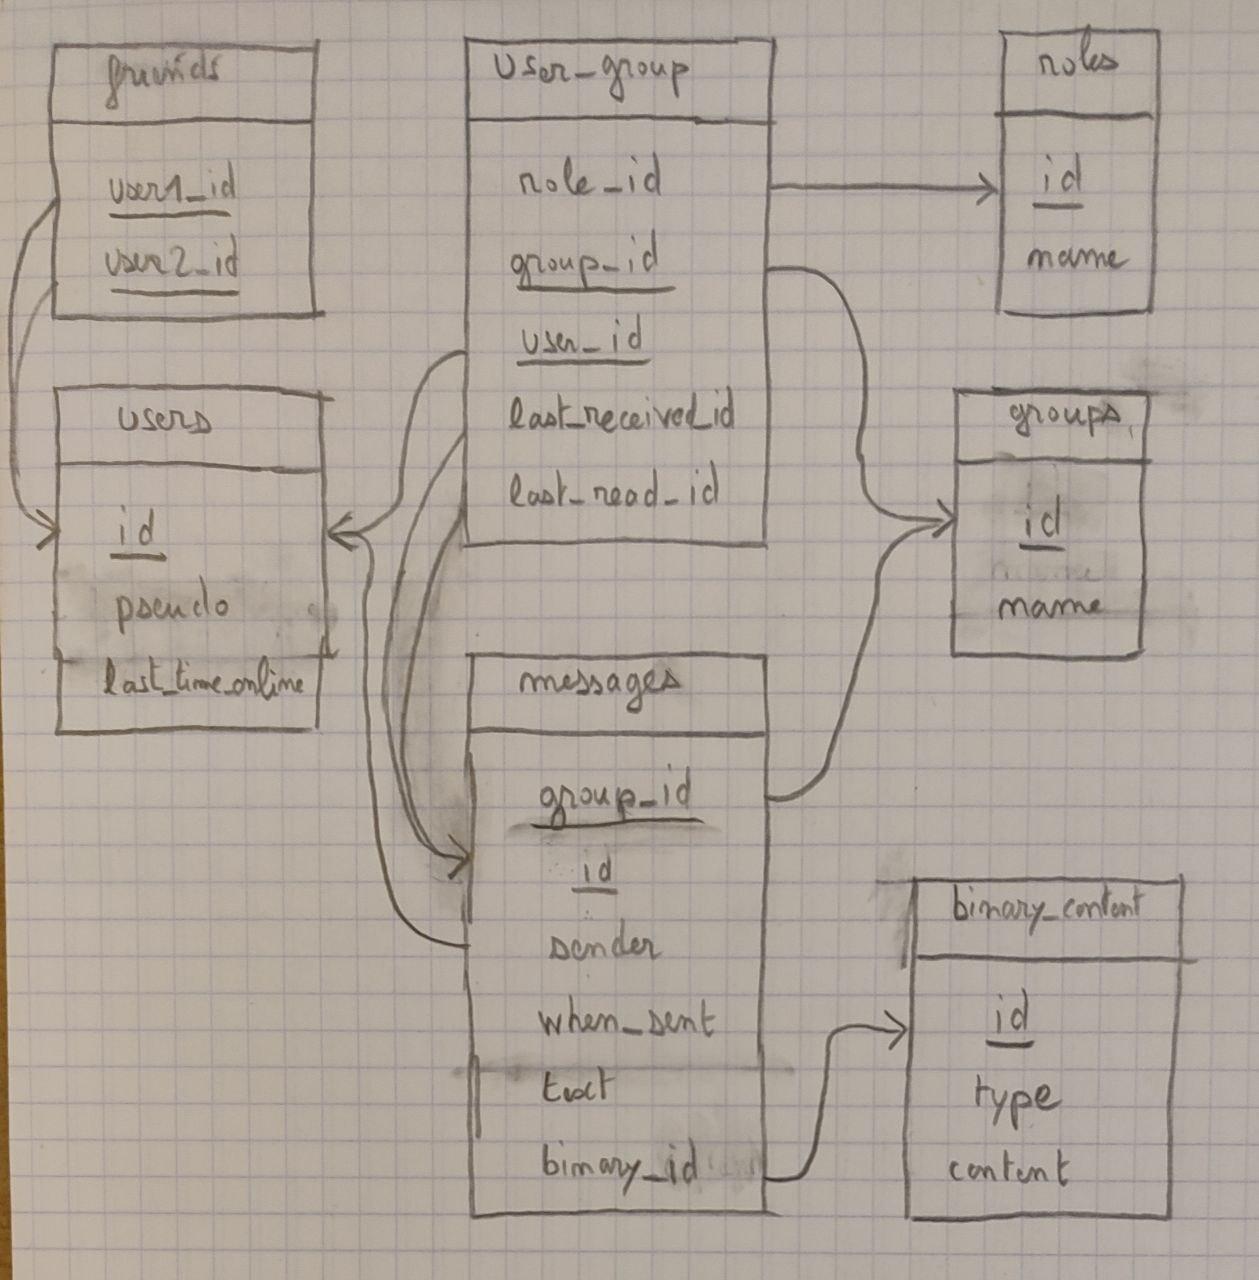 friends
user1_id
user2_id
users
id
pseudo
last_time_online
user_group
role_id
group_id
user_id
last_received_id
last_read_id
messages
group_id
id
sender
when_sent
text
binary_id
roles
id
name
groups
id
name
binary_content
id
type
content